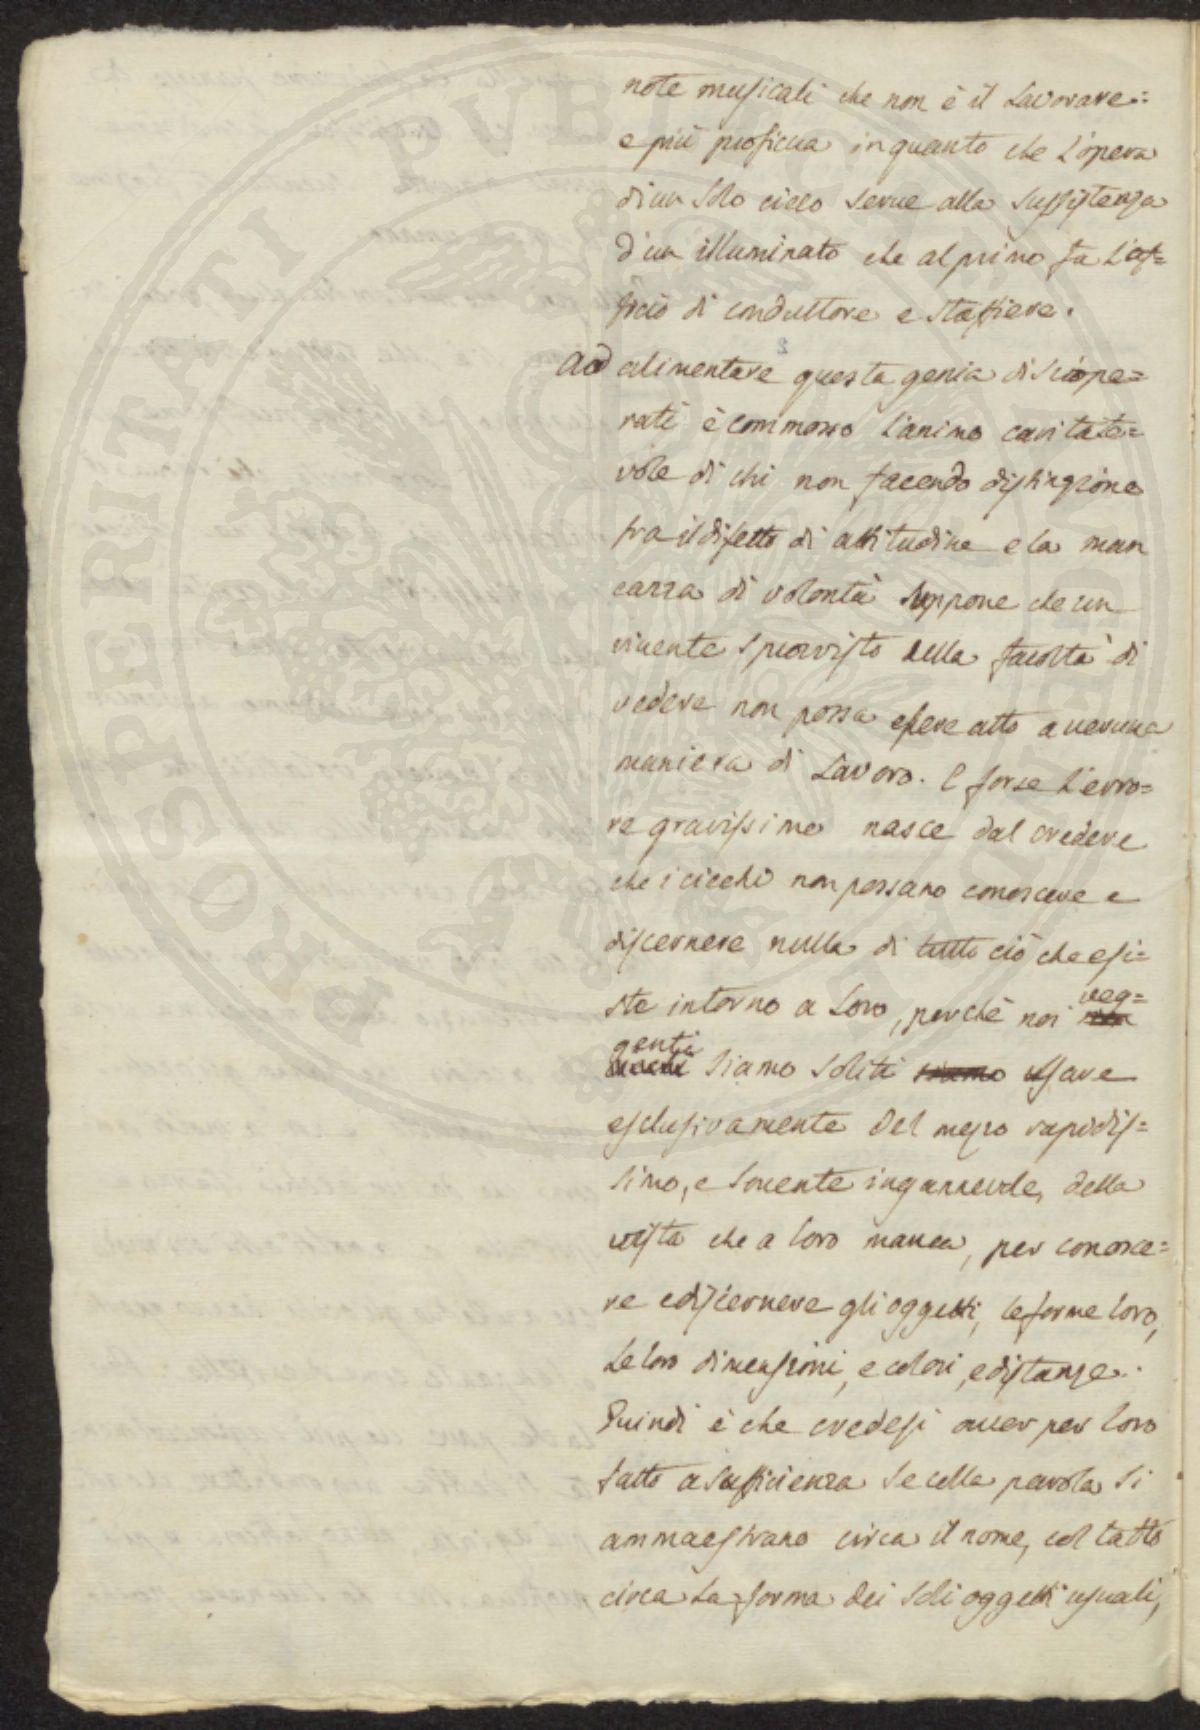 note musicali che non è il Lavorare:
e più proficua inquanto che L'opera
di un Solo cieco serve alla sussistenza
d'un illuminato che al primo fa L'of=
ficio di conduttore e staffiere.
Ad alimentare questa genia di sciope=
rati è commosso L'animo caritate=
vole di chi non facendo distinzione
fra il difetto di attitudine e la man
canza di volontà suppone che un
vivente sprovvisto della facoltà di
vedere non possa essere atto a veruna
maniera di Lavoro. E forse L'erro=
re gravissimo nasce dal credere
che i ciechi non possano conoscere e
discernere nulla di tutto ciò che esi=
ste intorno a Loro, perchè noi veg=
genti siamo soliti siamo usare
esclusivamente del mezzo rapidis=
simo, e sovente ingannevole, della
vista che a loro manca, per conosce=
re e discernere gli oggetti, le forme loro,
Le loro dimensioni, e colori, e distanze.
Quindi è che credesi aver per loro
fatto a sufficienza se colla parola si
ammaestrano circa il nome, col tatto
circa La forma dei soli oggetti usuali,
PROSPERITATI PVBLICAE